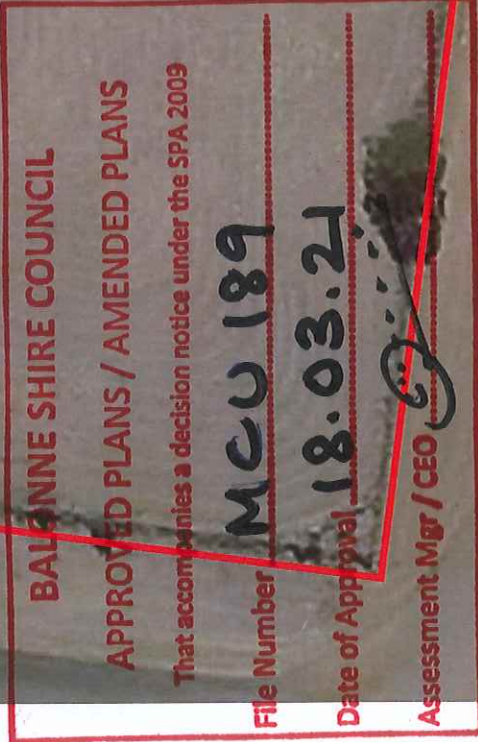 BALONNE SHIRE COUNCIL
APPROVED PLANS / AMENDED PLANS
That accompanies a decision notice under the SPA 2009
File Number MCU 189
Date of Approval 18.03.21
Assessment Mgr / CEO